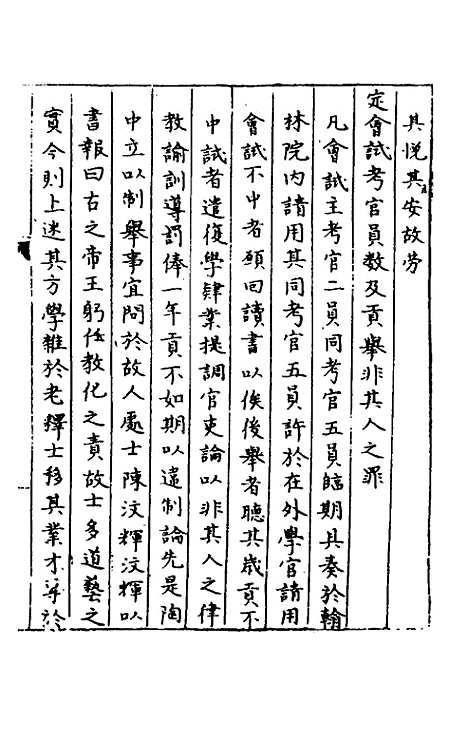 其悅其安故勞
定會試考官員數及貢舉非其人之罪
凡會試主考官二員同考官五員臨期具奏於翰
林院內請用其同考官五員許於在外學官請用
會試不中者願回讀書以俟後舉者聽其歲貢不
中試者遣復學肄業提調官吏論以非其人之律
教諭訓導罰俸一年貢不如期以違制論先是陶
中立以制舉事宜問於故人處士陳汶輝汶輝以
書報曰古之帝王躬任教化之責故士多道藝之
實今則上迷其方學雜於老釋士移其業才𢍰於